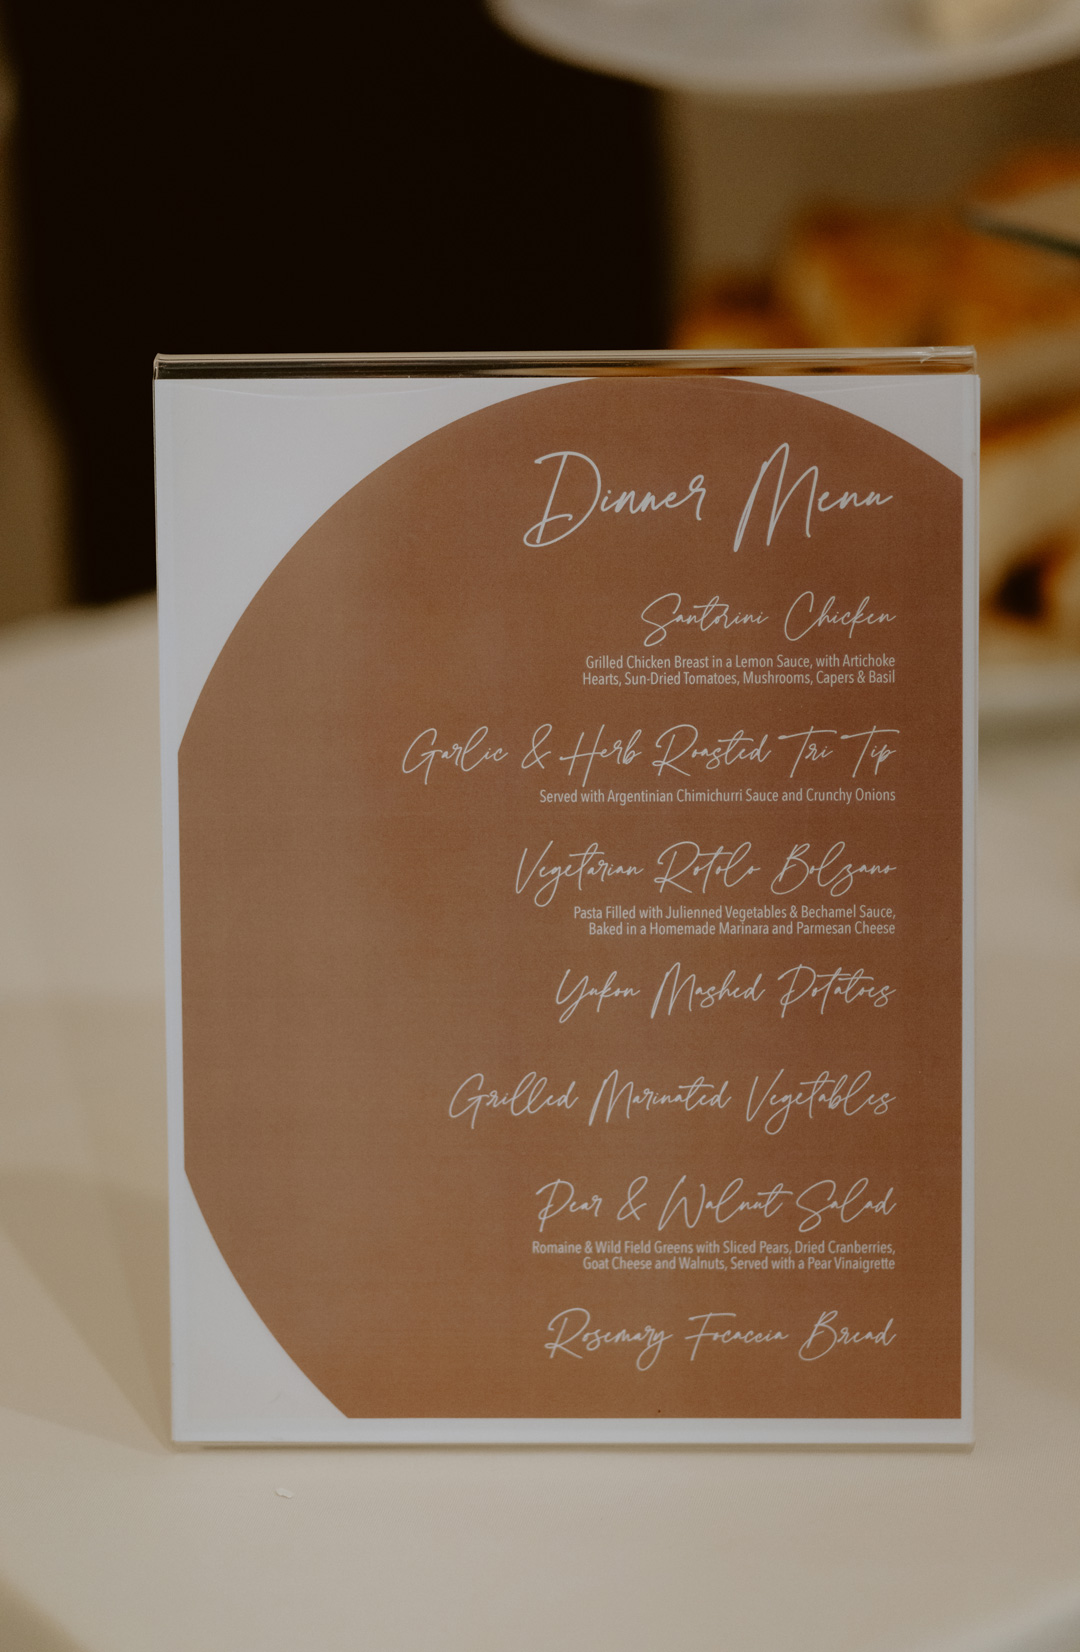 Dinner Menu
Santorini Chicken
Grilled Chicken Breast in a Lemon Sauce, with Artichoke
Hearts, Sun-Dried Tomatoes, Mushrooms, Capers & Basil
Garlic & Herb Roasted Tri Tip
Served with Argentinian Chimichurri Sauce and Crunchy Onions
Vegetarian Rotolo Bolzano
Pasta Filled with Julienned Vegetables & Bechamel Sauce,
Baked in a Homemade Marinara and Parmesan Cheese
Yukon Mashed Potatoes
Grilled Marinated Vegetables
Pear & Walnut Salad
Romaine & Wild Field Greens with Sliced Pears, Dried Cranberries,
Goat Cheese and Walnuts, Served with a Pear Vinaigrette
Rosemary Focaccia Bread